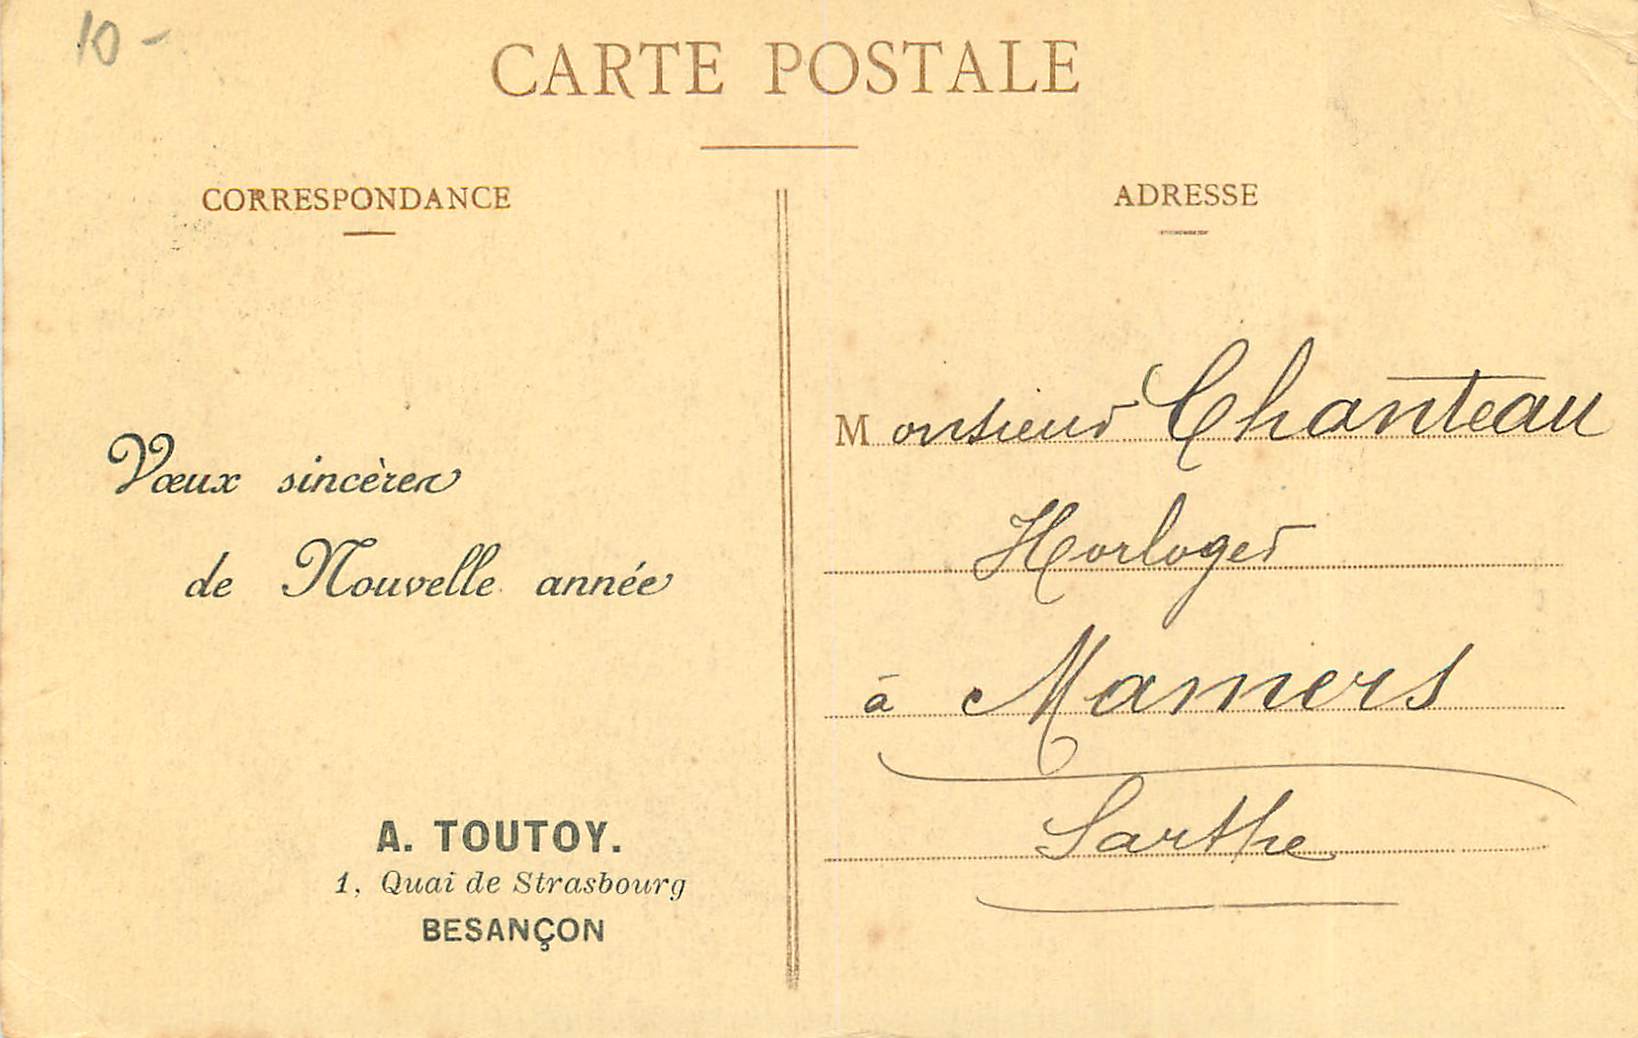 10 -
CARTE POSTALE
CORRESPONDANCE
Vœux sincères
de Nouvelle année
A. TOUTOY.
1, Quai de Strasbourg
BESANÇON
ADRESSE
Monsieur Chanteau
Horloger
à Mamers
Sarthe